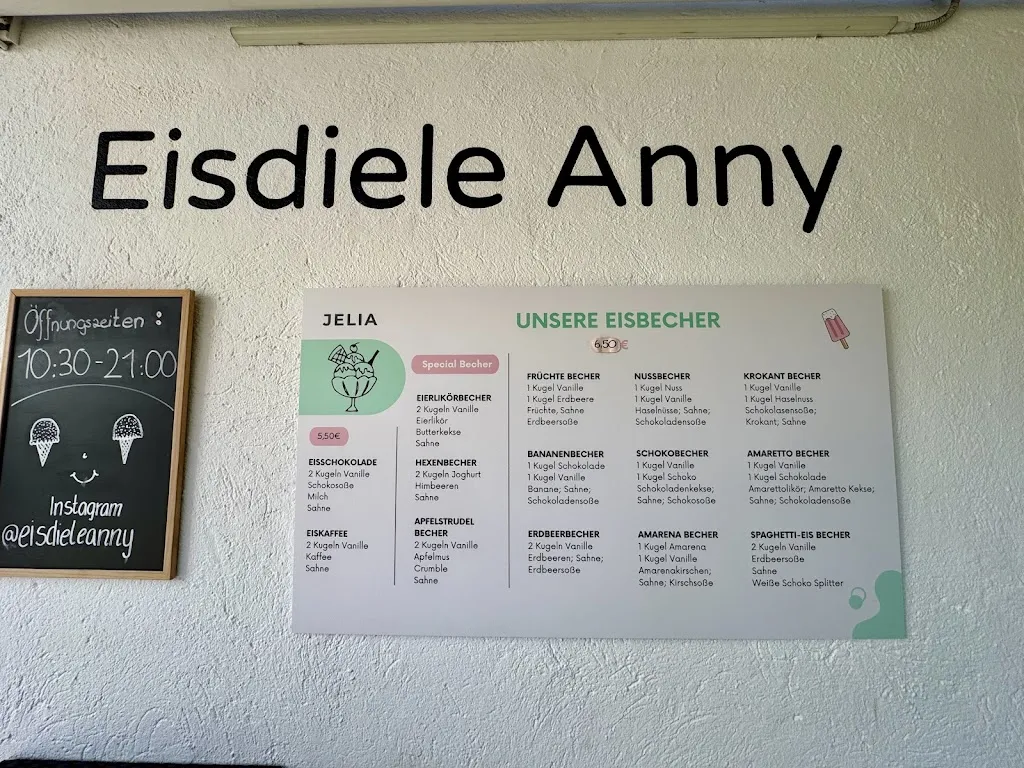 Eisdiele Anny
Öffnungszeiten :
10:30-21:00
Instagram
@eisdieleanny
JELIA
5,50€
EISSCHOKOLADE
2 Kugeln Vanille
Schokosoße
Milch
Sahne
EISKAFFEE
2 Kugeln Vanille
Kaffee
Sahne
Special Becher
EIERLIKÖRBECHER
2 Kugeln Vanille
Eierlikör
Butterkekse
Sahne
HEXENBECHER
2 Kugeln Joghurt
Himbeeren
Sahne
APFELSTRUDEL
BECHER
2 Kugeln Vanille
Apfelmus
Crumble
Sahne
UNSERE EISBECHER
6,50€
FRÜCHTE BECHER
1 Kugel Vanille
1 Kugel Erdbeere
Früchte, Sahne
Erdbeersoße
NUSSBECHER
1 Kugel Nuss
1 Kugel Vanille
Haselnüsse; Sahne;
Schokoladensoße
KROKANT BECHER
1 Kugel Vanille
1 Kugel Haselnuss
Schokolasensoße;
Krokant; Sahne
BANANENBECHER
1 Kugel Schokolade
1 Kugel Vanille
Banane; Sahne;
Schokoladensoße
SCHOKOBECHER
1 Kugel Vanille
1 Kugel Schoko
Schokoladenkekse;
Sahne; Schokosoße
AMARETTO BECHER
1 Kugel Vanille
1 Kugel Schokolade
Amarettolikör; Amaretto Kekse;
Sahne; Schokoladensoße
ERDBEERBECHER
2 Kugeln Vanille
Erdbeeren; Sahne;
Erdbeersoße
AMARENA BECHER
1 Kugel Amarena
1 Kugel Vanille
Amarenakirschen;
Sahne; Kirschsoße
SPAGHETTI-EIS BECHER
2 Kugeln Vanille
Erdbeersoße
Sahne
Weiße Schoko Splitter